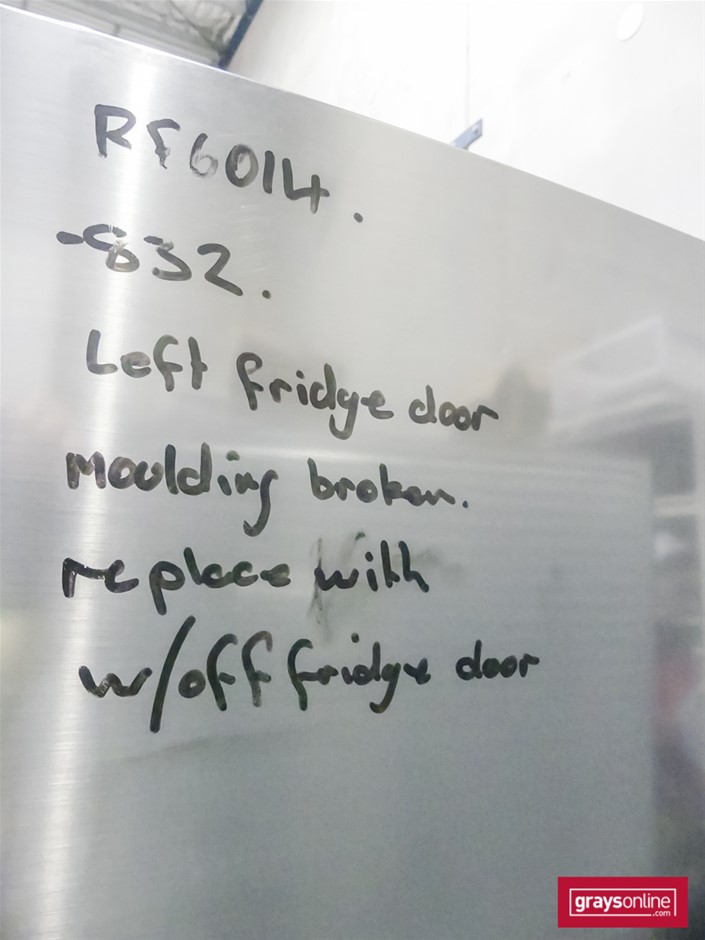 RF6014.
-832.
Left fridge door
moulding broken.
replace with
w/off fridge door
graysonline
.com